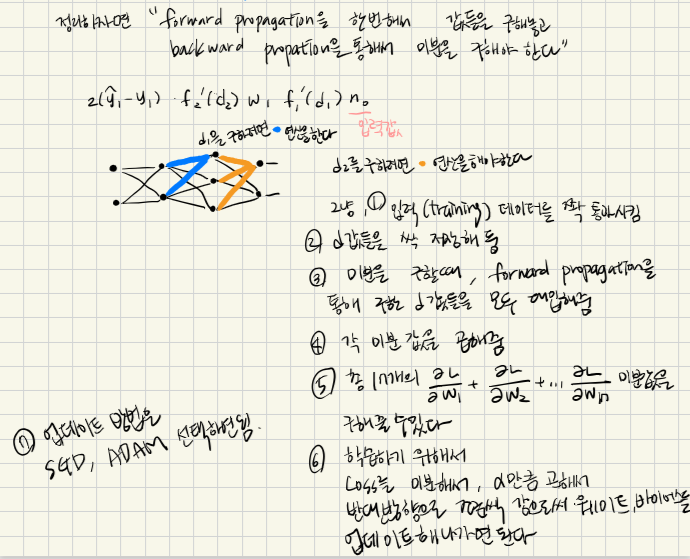 정리하자면 "forward propagation을 한번해서 값들을 구해놓고
backward propation을 통해서 미분을 구해야 한다"
2(ŷ₁-y₁) · f₂'(d₂) w₁ f₁'(d₁) n₀
입력값
d₁을 구하려면 • 연산을한다
d₂를 구하려면 • 연산을해야한다
그냥, ① 입력(training) 데이터를 쫙 통과시킴
② d값들을 싹 저장해 둠
③ 미분을 구할때, forward propagation을
통해 구한 d값들을 모두 대입해줌
④ 각 미분 값을 곱해줌
⑤ 총 17개의 ∂L/∂w₁ + ∂L/∂w₂ + ... ∂L/∂w₁₇ 미분값을
구해줄 수있다
⑥ 학습하기 위해서
Loss를 미분해서, α만큼 곱해서
반대방향으로 조금씩 감으로써 웨이트, 바이어스를
업데이트 해 나가면 된다
⑦ 업데이트 방법은
SGD, ADAM 선택하면됨.